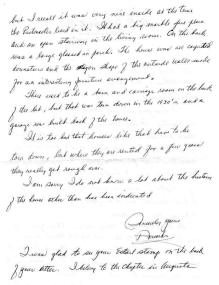 but I recall it was very nice inside at the time
the Pulmader lived in it. It had a big marble fire place
and an open stairway in the living room. On the back
was a large glassed in porch. The house was an
and the shape of the outside walls made
for an interesting furniture arrangement.
There used to be a barn and carriage room on the back
of the lot, but that was torn down in the 1930's and a
garage was built back of the house.
It is too bad that houses like that have to be
torn down, but when they are rented for a few years
they really get rough use.
I am sorry I do not know a lot about the history
of the home other than has been indicated
Sincerely yours
I was glad to see your Eastern Stamp on the back
of your letter. I belong to the Chapter in Augusta